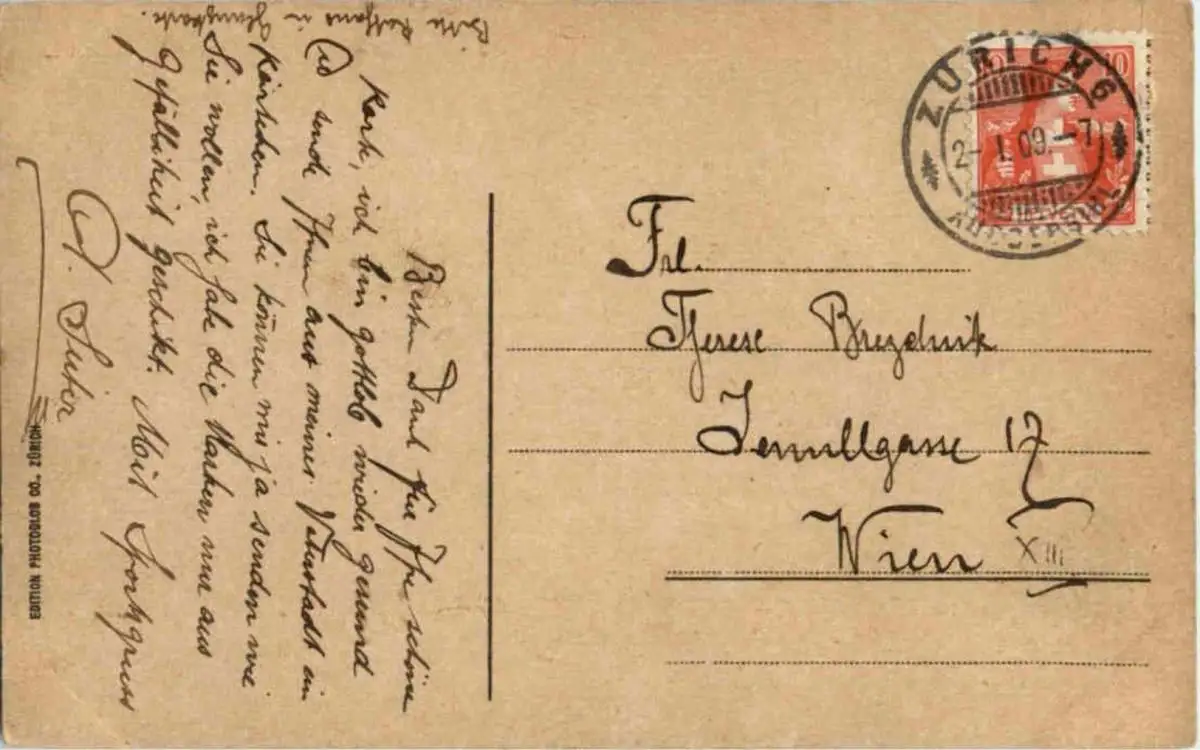 Besten Dank für Ihre schöne
Karte, ich bin gottlob wieder gesund
sende Ihnen aus meiner Vaterstadt ein
Kärtchen. Sie können mir ja senden wie
Sie wollen, ich habe die Marken nur aus
Gefälligkeit geschikt. Mit Sportgruss
A. Suter
Bitte in
EDITION PHOTOGLOB CO., ZÜRICH
ZÜRICH 6
2- I.09.-7
10
Frl.
Therese
Jenullgasse 17
Wien XIII